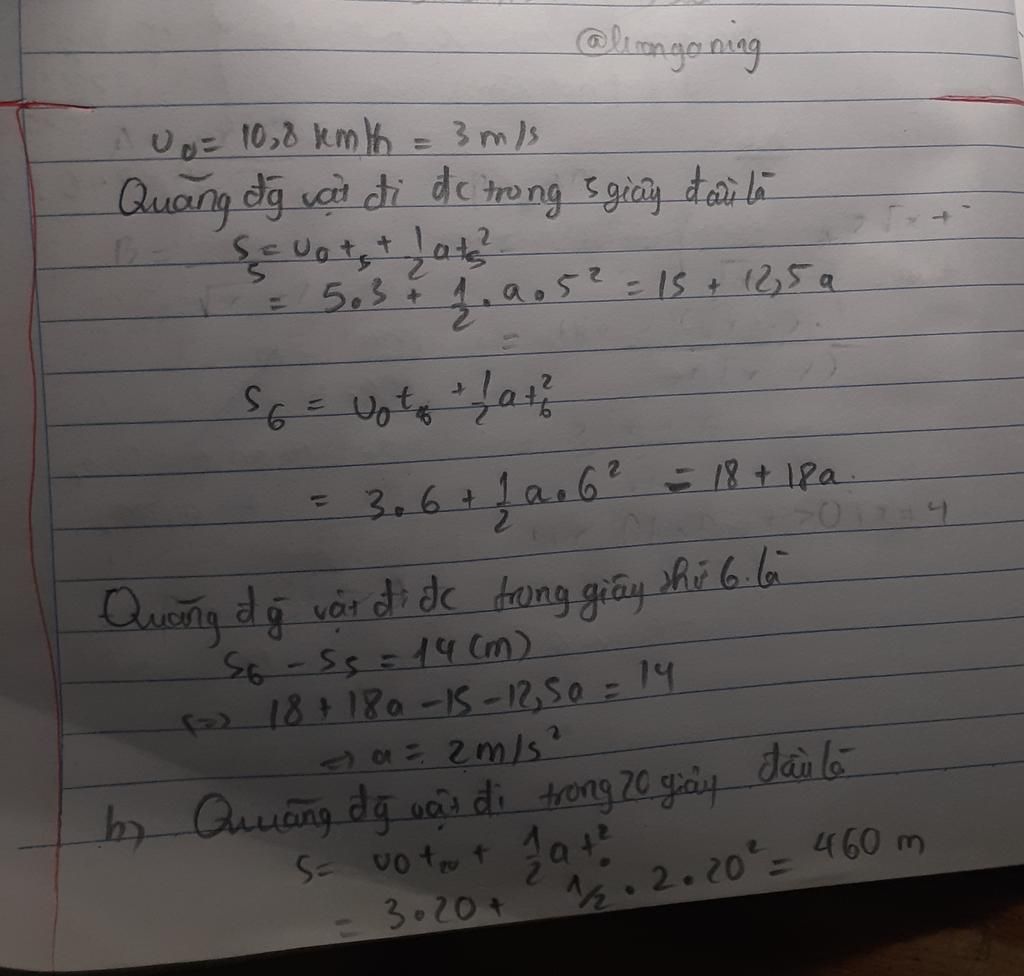 @liangoning
v₀ = 10,8 km/h = 3 m/s
Quãng đg vật đi đc trong 5 giây đầu là
S₅ = v₀t₅ + 1/2 at₅²
= 5.3 + 1/2 . a . 5² = 15 + 12,5a
=
S₆ = v₀t₆ + 1/2 at₆²
= 3.6 + 1/2 a.6² = 18 + 18a.
Quãng đg vật đi đc trong giây thứ 6. là
S₆ - S₅ = 14 (m)
<=> 18 + 18a - 15 - 12,5a = 14
=> a = 2 m/s²
b) Quuãng đg vật đi trong 20 giây đầu là
S = v₀t₂₀ + 1/2 at²
= 3.20 + 1/2 . 2 . 20² = 460 m